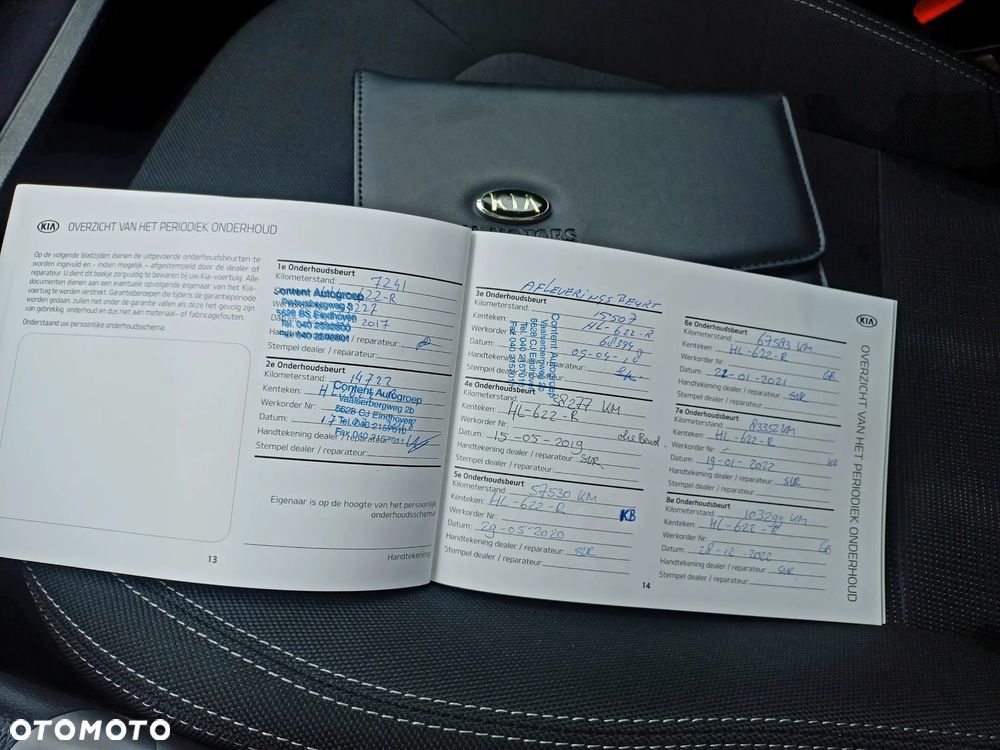 KIA
KIA
OVERZICHT VAN HET PERIODIEK ONDERHOUD
Op de volgende bladzijden dienen de uitgevoerde onderhoudsbeurten te
worden ingevuld en - indien mogelijk - afgestempeld door de dealer of
reparateur. U dient dit boekje zorgvuldig te bewaren bij uw Kia-voertuig. Alle
documenten dienen aan een eventuele opvolgende eigenaar van het Kia-
voertuig te worden verstrekt. Garantieoproepen die tijdens de garantieperiode
worden gedaan, zullen niet onder de garantie vallen als deze het gevolg zijn
van gebrekkig onderhoud en dus niet aan materiaal- of fabricagefouten
Onderstaand uw persoonlijke onderhoudsschema.
13
1e Onderhoudsbeurt
Kilometerstand: 7241
622-R
Content Autogroep
5628 BS Eindhoven
2017
Stempel dealer / reparateur:
2e Onderhoudsbeurt
Kilometerstand: 14722
Kenteken:
Content Autogroep
Vaalserbergweg 2b
Werkorder Nr:
5628 CJ Eindhoven
Datum: 17
Handtekening dealer / reparateur:
Stempel dealer / reparateur:
Eigenaar is op de hoogte van het persoonlijk
onderhoudsschema
Handtekening
AFLEVERINGSBEURT
3e Onderhoudsbeurt
Kilometerstand: 15507
Kenteken: HL-622-R
Werkorder Nr:
Datum: 09-04-18
Handtekening dealer
Stempel dealer / reparateur:
Content Autogroep
Vaalserbergweg 2b
5628 CJ Eindhoven
4e Onderhoudsbeurt
Kilometerstand: 38277 KM
Kenteken: HL-622-R
Werkorder Nr:
Datum: 15-05-2019
Handtekening dealer / reparateur:
Stempel dealer / reparateur:
5e Onderhoudsbeurt
Kilometerstand: 57530 KM
Kenteken: HL-622-R
KB
Werkorder Nr:
Datum: 29-05-2020
Handtekening dealer / reparateur:
Stempel dealer / reparateur:
14
KIA
6e Onderhoudsbeurt
Kilometerstand: 67583 KM
Kenteken: HL-622-R
Werkorder Nr: GB
Datum: 22-01-2021
Handtekening dealer / reparateur:
Stempel dealer / reparateur:
7e Onderhoudsbeurt
Kilometerstand: 83352 KM
Kenteken: HL-622-R
Werkorder Nr: -
Datum: 19-01-2022 KB
Handtekening dealer / reparateur:
Stempel dealer / reparateur:
8e Onderhoudsbeurt
Kilometerstand: 103290 KM
Kenteken: HL-622-R
Werkorder Nr: GB
Datum: 28-12-2022
Handtekening dealer / reparateur:
Stempel dealer / reparateur:
OVERZICHT VAN HET PERIODIEK ONDERHOUD
OTOMOTO